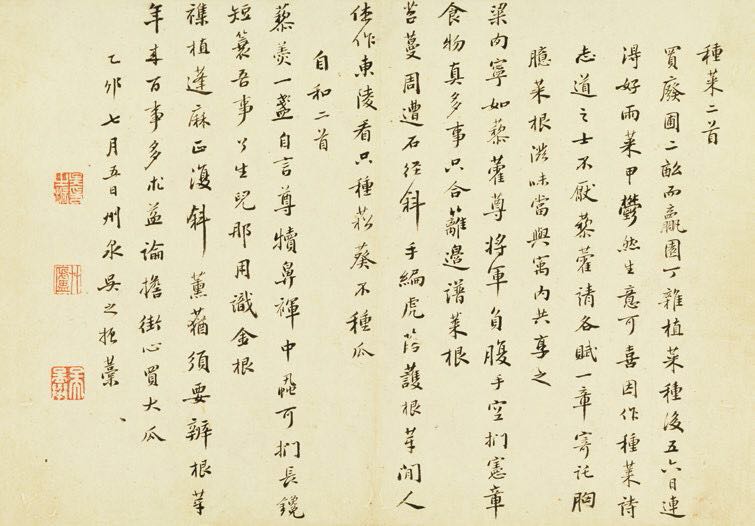 種菜二首
買廢圃二畝而羸園丁雜植菜種後五六日連
得好雨菜甲鬱然生意可喜因作種菜詩
志道之士不厭藜藿請各賦一章寄託胸
臆菜根滋味當與寓內共享之
梁肉寧如藜藿尊將軍負腹手空捫憲章
食物真多事只合籬邊譜菜根
苔蔓周遭石徑斜手編虎落護根芽閒人
任作東陵看只種菘葵不種瓜
自和二首
藜羹一盞自言尊犢鼻褌中虱可捫長鑱
短蓑吾事了生兒那用識金根
襍植蓬麻正復斜薰蕕須要辨根芽
年來百事多求益論擔街心買大瓜
乙卯七月五日州泉吳之振藁